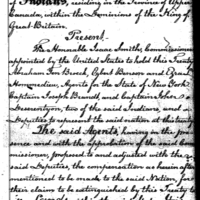 of Indians, residing in the Province of Upper
Canada, within the Dominions of the King of
Great-Britain.
Present.
The Honorable Isaac Smith, Commissioner
appointed by the United States to hold this Treaty
Abraham Ten Broeck, Egbert Benson and Ezra
Hommedieu, Agents for the State of New York
Captain Joseph Brandt, and Captain John
Deserontyon, two of the said Indians, and
Deputies to represent the said nation at this treaty
The said Agents, having in the pre-
sence and with the approbation of the said Com-
missioner, proposed to and adjusted with the
said Deputies, the compensation as herein after
mentioned to be made to the said Nation, for
their claim to be extinguished by this Treaty to